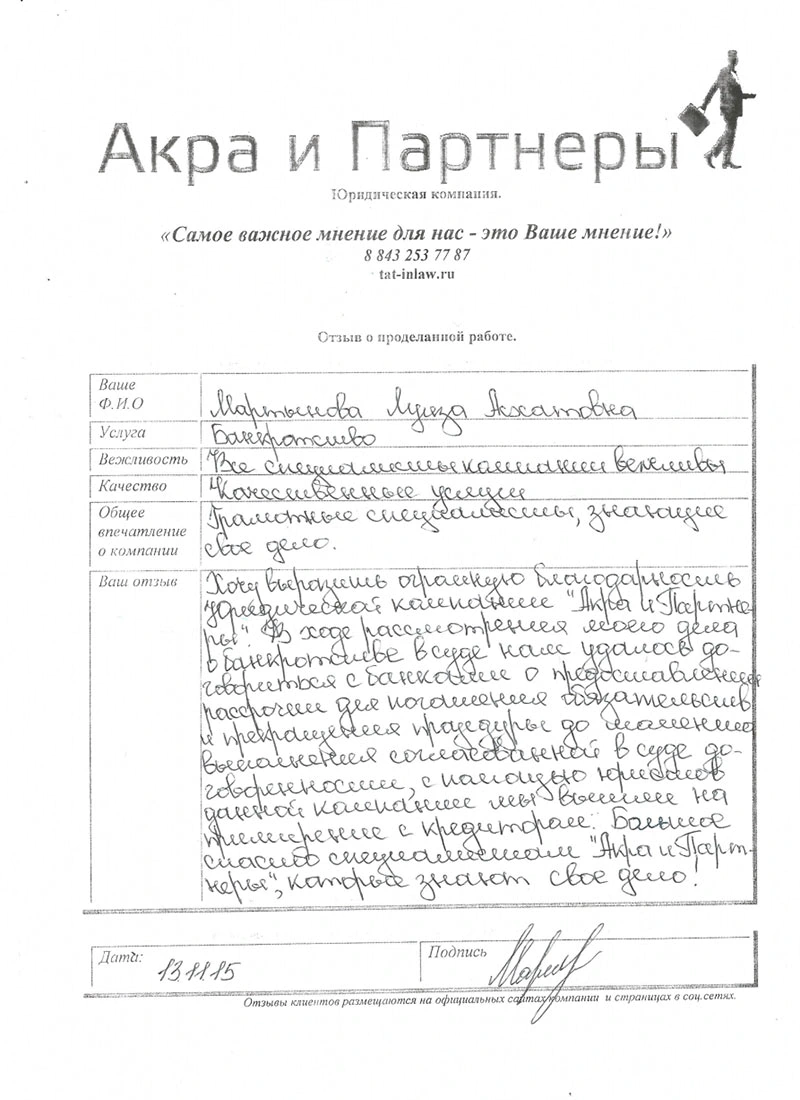 Акра и Партнеры
Юридическая компания.
«Самое важное мнение для нас - это Ваше мнение!»
8 843 253 77 87
tat-inlaw.ru
Отзыв о проделанной работе.
Ваше
Ф.И.О
Мартынова Луиза Ахатовна
Услуга
Банкротство
Вежливость
Все специалисты компании вежливы
Качество
Качественные услуги
Общее
впечатление
о компании
Грамотные специалисты, знающие
свое дело.
Ваш отзыв
Хочу выразить огромную благодарность
юридической компании "Акра и Партне-
ры". В ходе рассмотрения моего дела
о банкротстве в суде нам удалось до-
говориться с банками о предоставлении
рассрочки для погашения обязательств
и прекращения процедуры до момента
выполнения согласованной в суде до-
говоренности, с помощью юристов
данной компании мы вышли на
примирение с кредитором. Большое
спасибо специалистам "Акра и Парт-
неры", которые знают свое дело!
Дата:
13.11.15
Подпись
Отзывы клиентов размещаются на официальных сайтах компании и страницах в соц.сетях.